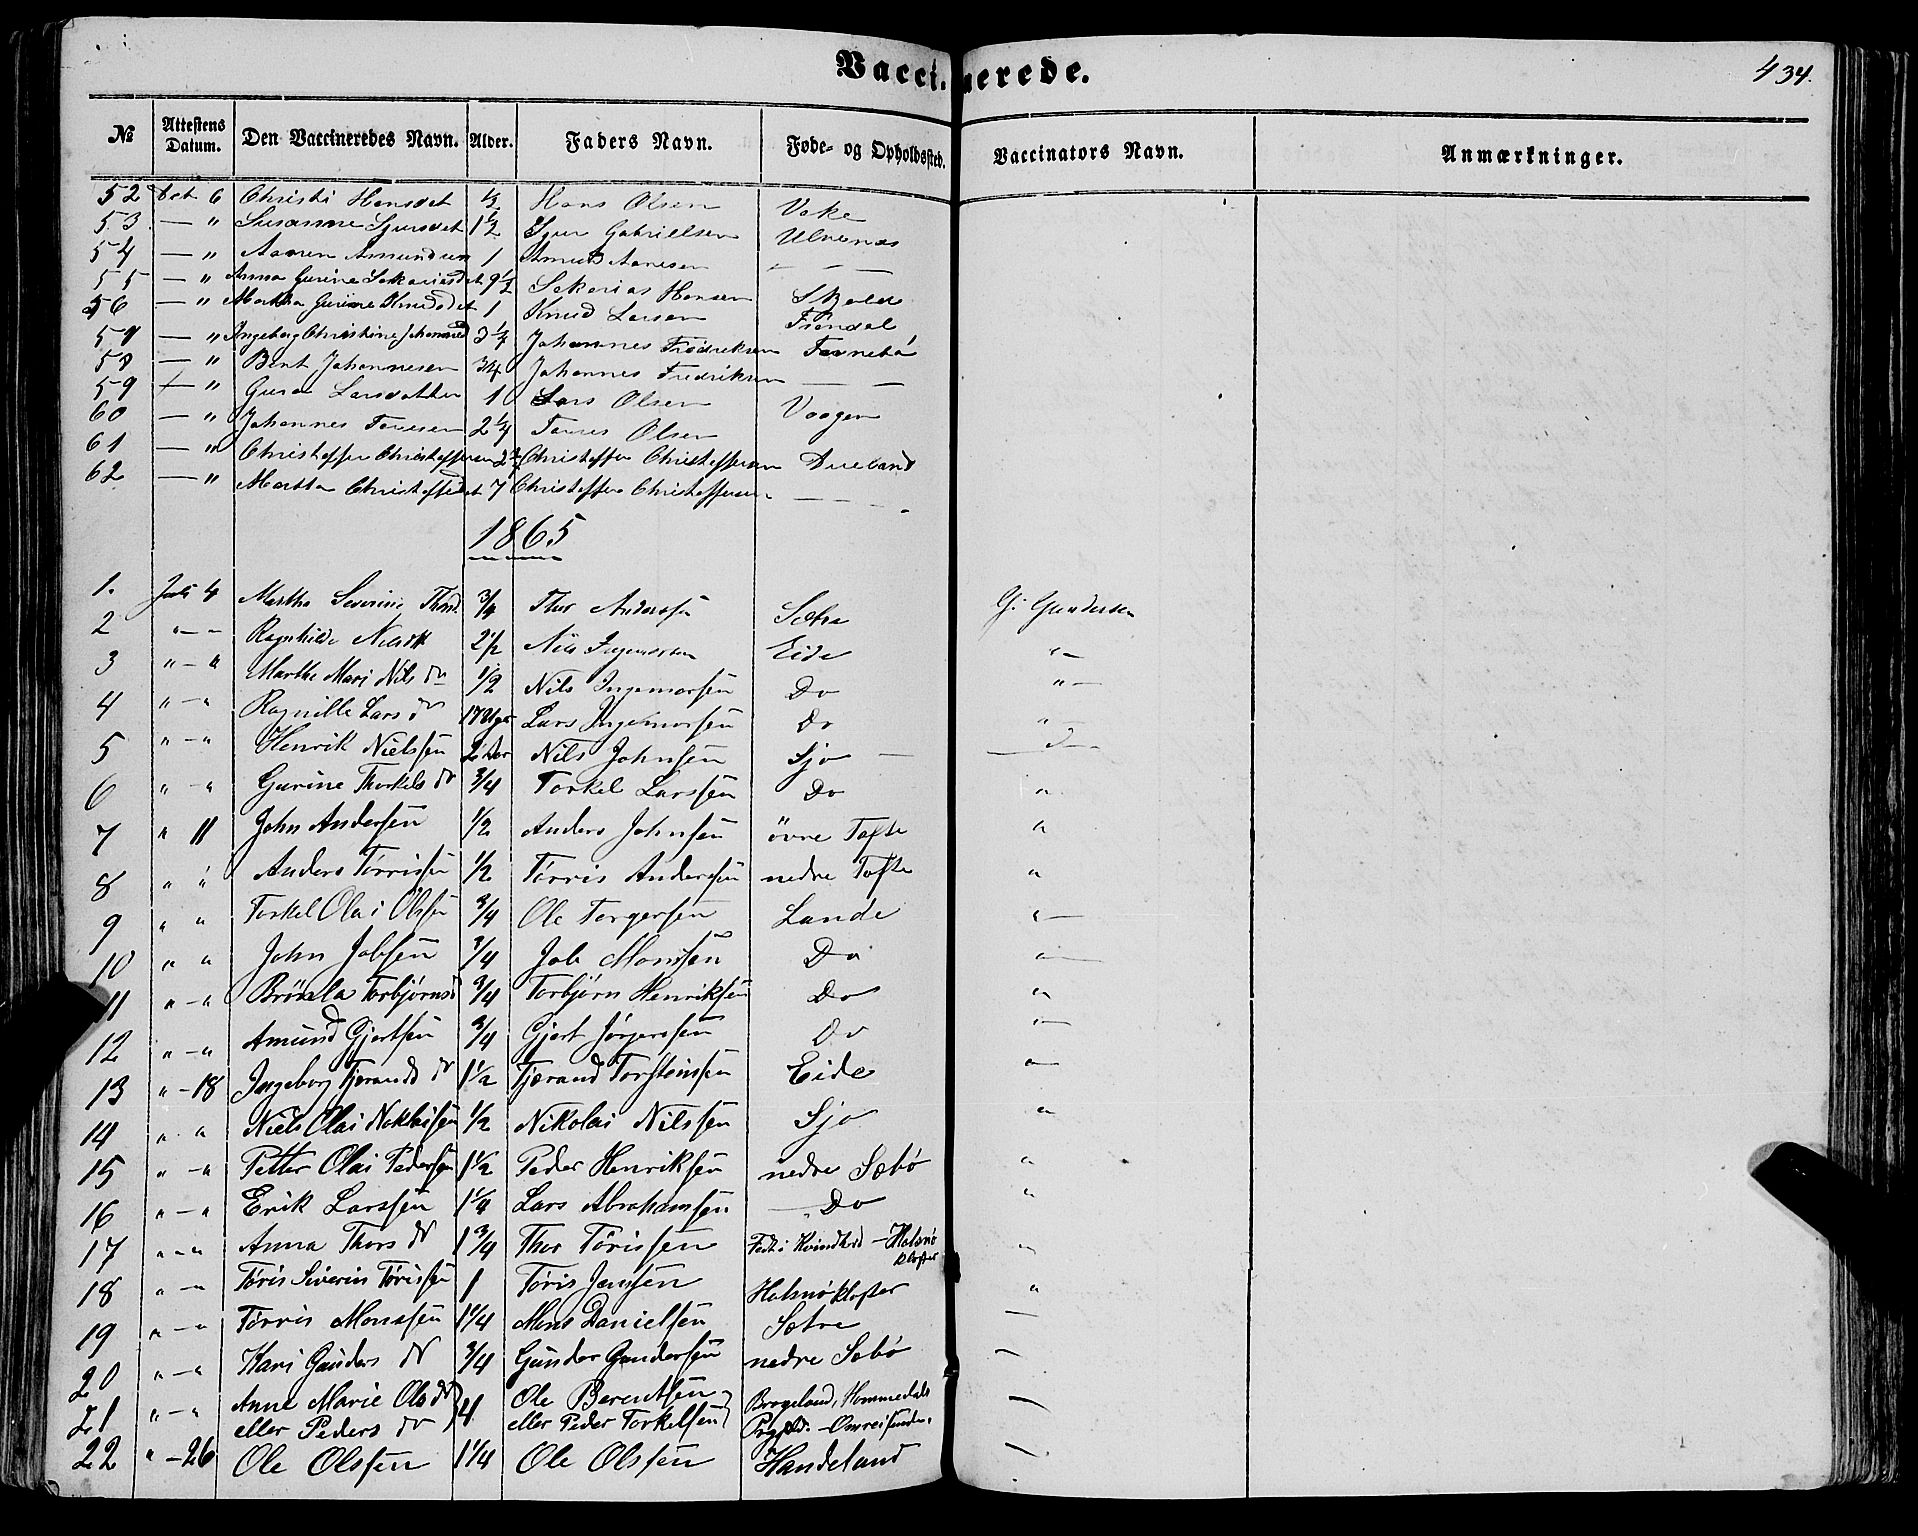 Vaccinerede.
434.
№ | Attestens Datum. | Den Vaccineredes Navn. | Alder. | Faders Navn. | Føde- og Opholdssted. | Vaccinators Navn. | Anmærkninger.
52 | Oct 6 | Christi Hansdat | ½ | Hans Olsen | Vake
53 | — " | Susanne Sjursdat | 1½ | Sjur Gabrielsen | Ulvenæs
54 | — " | Aanen Amundsen | 1 | Amund Aanesen | — —
55 | — " | Anna Gurine Sakariasdt | 9½ | Sakarias Hansen | Skold
56 | — " | Martha Gurine Knudsdt | 1 | Knud Larsen
57 | — " | Ingeborg Christine | 3¼ | Johannes Fredriksen
58 | — " | Bent Johannesen | 3/4 | Johannes Fredriksen | — —
59 | — " | Guro Larsdatter | 1 | Lars Olsen | Vaagen
60 | — " | Johannes | 2¼ | Olsen
61 | — " | Christoffer Christoffersen | Christoffer Christoffersen | Dueland
62 | — " | Martha | 7 | Christoffer Christoffersen | — — —
1865
1. | Juli 4 | Martha Severine Thorsd | 3/4 | Thor Anderssen | Sætre | G. Gundersen
2 | " — | Ragnhilde | 2½ | Nils | Eide | " —
3 | " — " | Marthe Mari Nils dr | 1/2 | Nils Ingemorsen | Do | " —
4 | " — " | Ragnille Lars dr | 17 Uger | Lars Ingemorsen | Do | " —
5 | " — " | Henrik Nielssen | 2 Aar | Nils Johnsen | Sjo — | — —
6 | " — " | Gurine Thorkels dr | 3/4 | Torkel Larssen | Do | "
7 | " 11 | John Andersen | 1/2 | Anders Johnsen | övre Tofte | "
8 | " " | Anders Tørrisen | 1/2 | Tørris Andersen | nedre Tofte | "
9 | " " | Torkel Olai Olsen | 3/4 | Ole Torgersen | Lande | " —
10 | " " | John Jobsen | 3/4 | Job Monsen | Do | " —
11 | " — " | Torbjørnsd | 3/4 | Torbjørn Henriksen | Do | "
12 | " — " | Amund Gjertsen | 3/4 | Gjert Jørgensen | Do | " —
13 | " — 18 | Ingeborg Tjerands dr | 1½ | Tjærand Torsteinsen | Eide | " —
14 | " " | Niels Olai | 1/2 | Nikolai Nilssen | Sjo | "
15 | " — " | Petter Olai Pedersen | 1½ | Peder Henriksen | nedre Sæbø | "
16 | " — " | Erik Larssen | 1¼ | Lars Abrahamsen | — Do | "
17 | " — " | Anna Thors dr | 1¾ | Thor Tørissen | Født i Kvindherred — Halsnø Kloster | "
18 | " — " | Tøris Siverin Tørissen | 1 | Tøris Jenssen | Halsnøkloster | "
19 | " — " | Tørris Monssen | 1¼ | Mons Danielsen | Sætre | —
20 | " — " | Kari Gunders dr | 3/4 | Gunder Gundersen | nedre Sæbø | —
21 | " — " | Anne Marie Ols dr eller Peders dr | 4 | Ole Berentsen eller Peder Torkelsen | Brageland, Hommedals Prgjeld. — Omreisende. | —
22 | " — 26 | Ole Olssen | 1¼ | Ole Olssen | Handeland | —